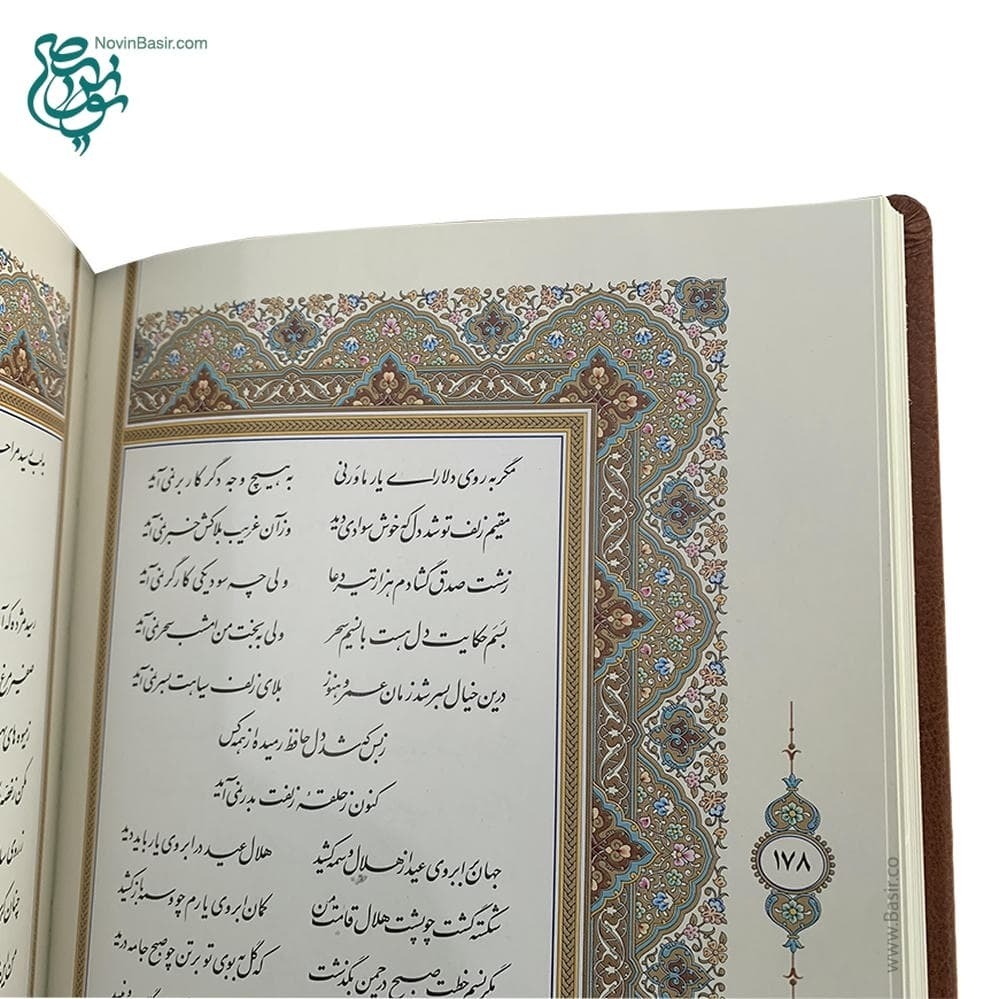 NovinBasir.com
مگر به روی دلارای یار ما ورنی به هیچ وجه دگر کار برنمی‌آید
مقیم زلف تو شد دل که خوش سوادی دید وزآن غریب بلاکش خبر نمی‌آید
زشست صدق گشادم هزار تیر دعا ولی چه سود یکی کارگر نمی‌آید
بسم حکایت دل هست با نسیم سحر ولی بخت من امشب سحر نمی‌آید
درین خیال بسر شد زمان عمر و هنوز بلای زلف سیاهت بسر نمی‌آید
زبس که شد دل حافظ رمیده از همه کس
کنون ز حلقهٔ زلفت بدر نمی‌آید
جهان بر ابروی عید از هلال وسمه کشید هلال عید در ابروی یار باید دید
شکسته گشت چو پشت هلال قامت من کمان ابروی یارم چو وسمه باز کشید
مگر نسیم خطت صبح در چمن بگذشت که گل به بوی تو بر تن چو صبح جامه درید
۱۷۸
www.Basir.co